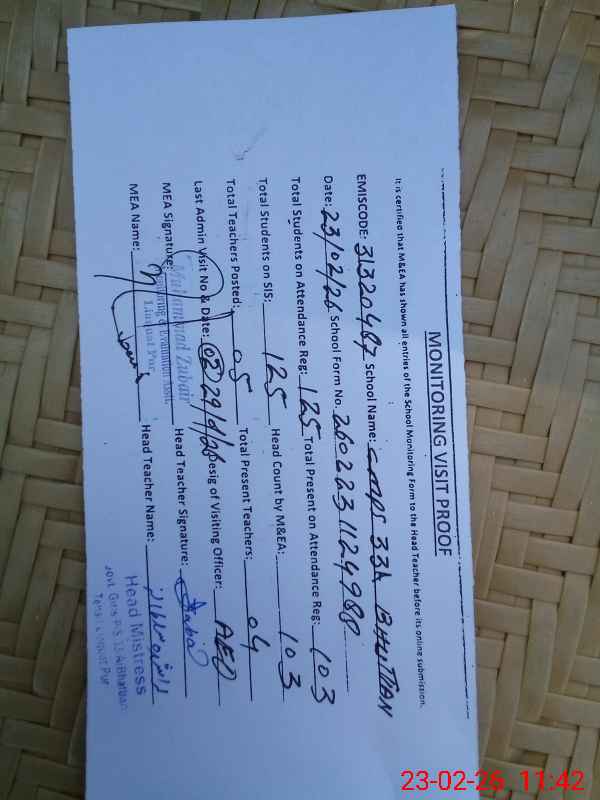 MONITORING VISIT PROOF
It is certified that M&EA has shown all entries of the School Monitoring Form to the Head Teacher before its online submission.
EMISCODE: 31320487 School Name: GMPS 33A BHUTTAN
Date: 23/02/26 School Form No. 2602231124988
Total Students on Attendance Reg: 125 Total Present on Attendance Reg: 103
Total Students on SIS: 125 Head Count by M&EA: 103
Total Teachers Posted: 05 Total Present Teachers: 04
Last Admin Visit No & Date: 02 29/ /26 esig of Visiting Officer: AEO
MEA Signature: Head Teacher Signature:
Muhammad Zubair
Monitoring & Evaluation Assitt
Liaquat Pur
MEA Name: Head Teacher Name:
Head Mistress
Govt. Girls P/S
Tehsil Liaquat Pur
23-02-26 11:42